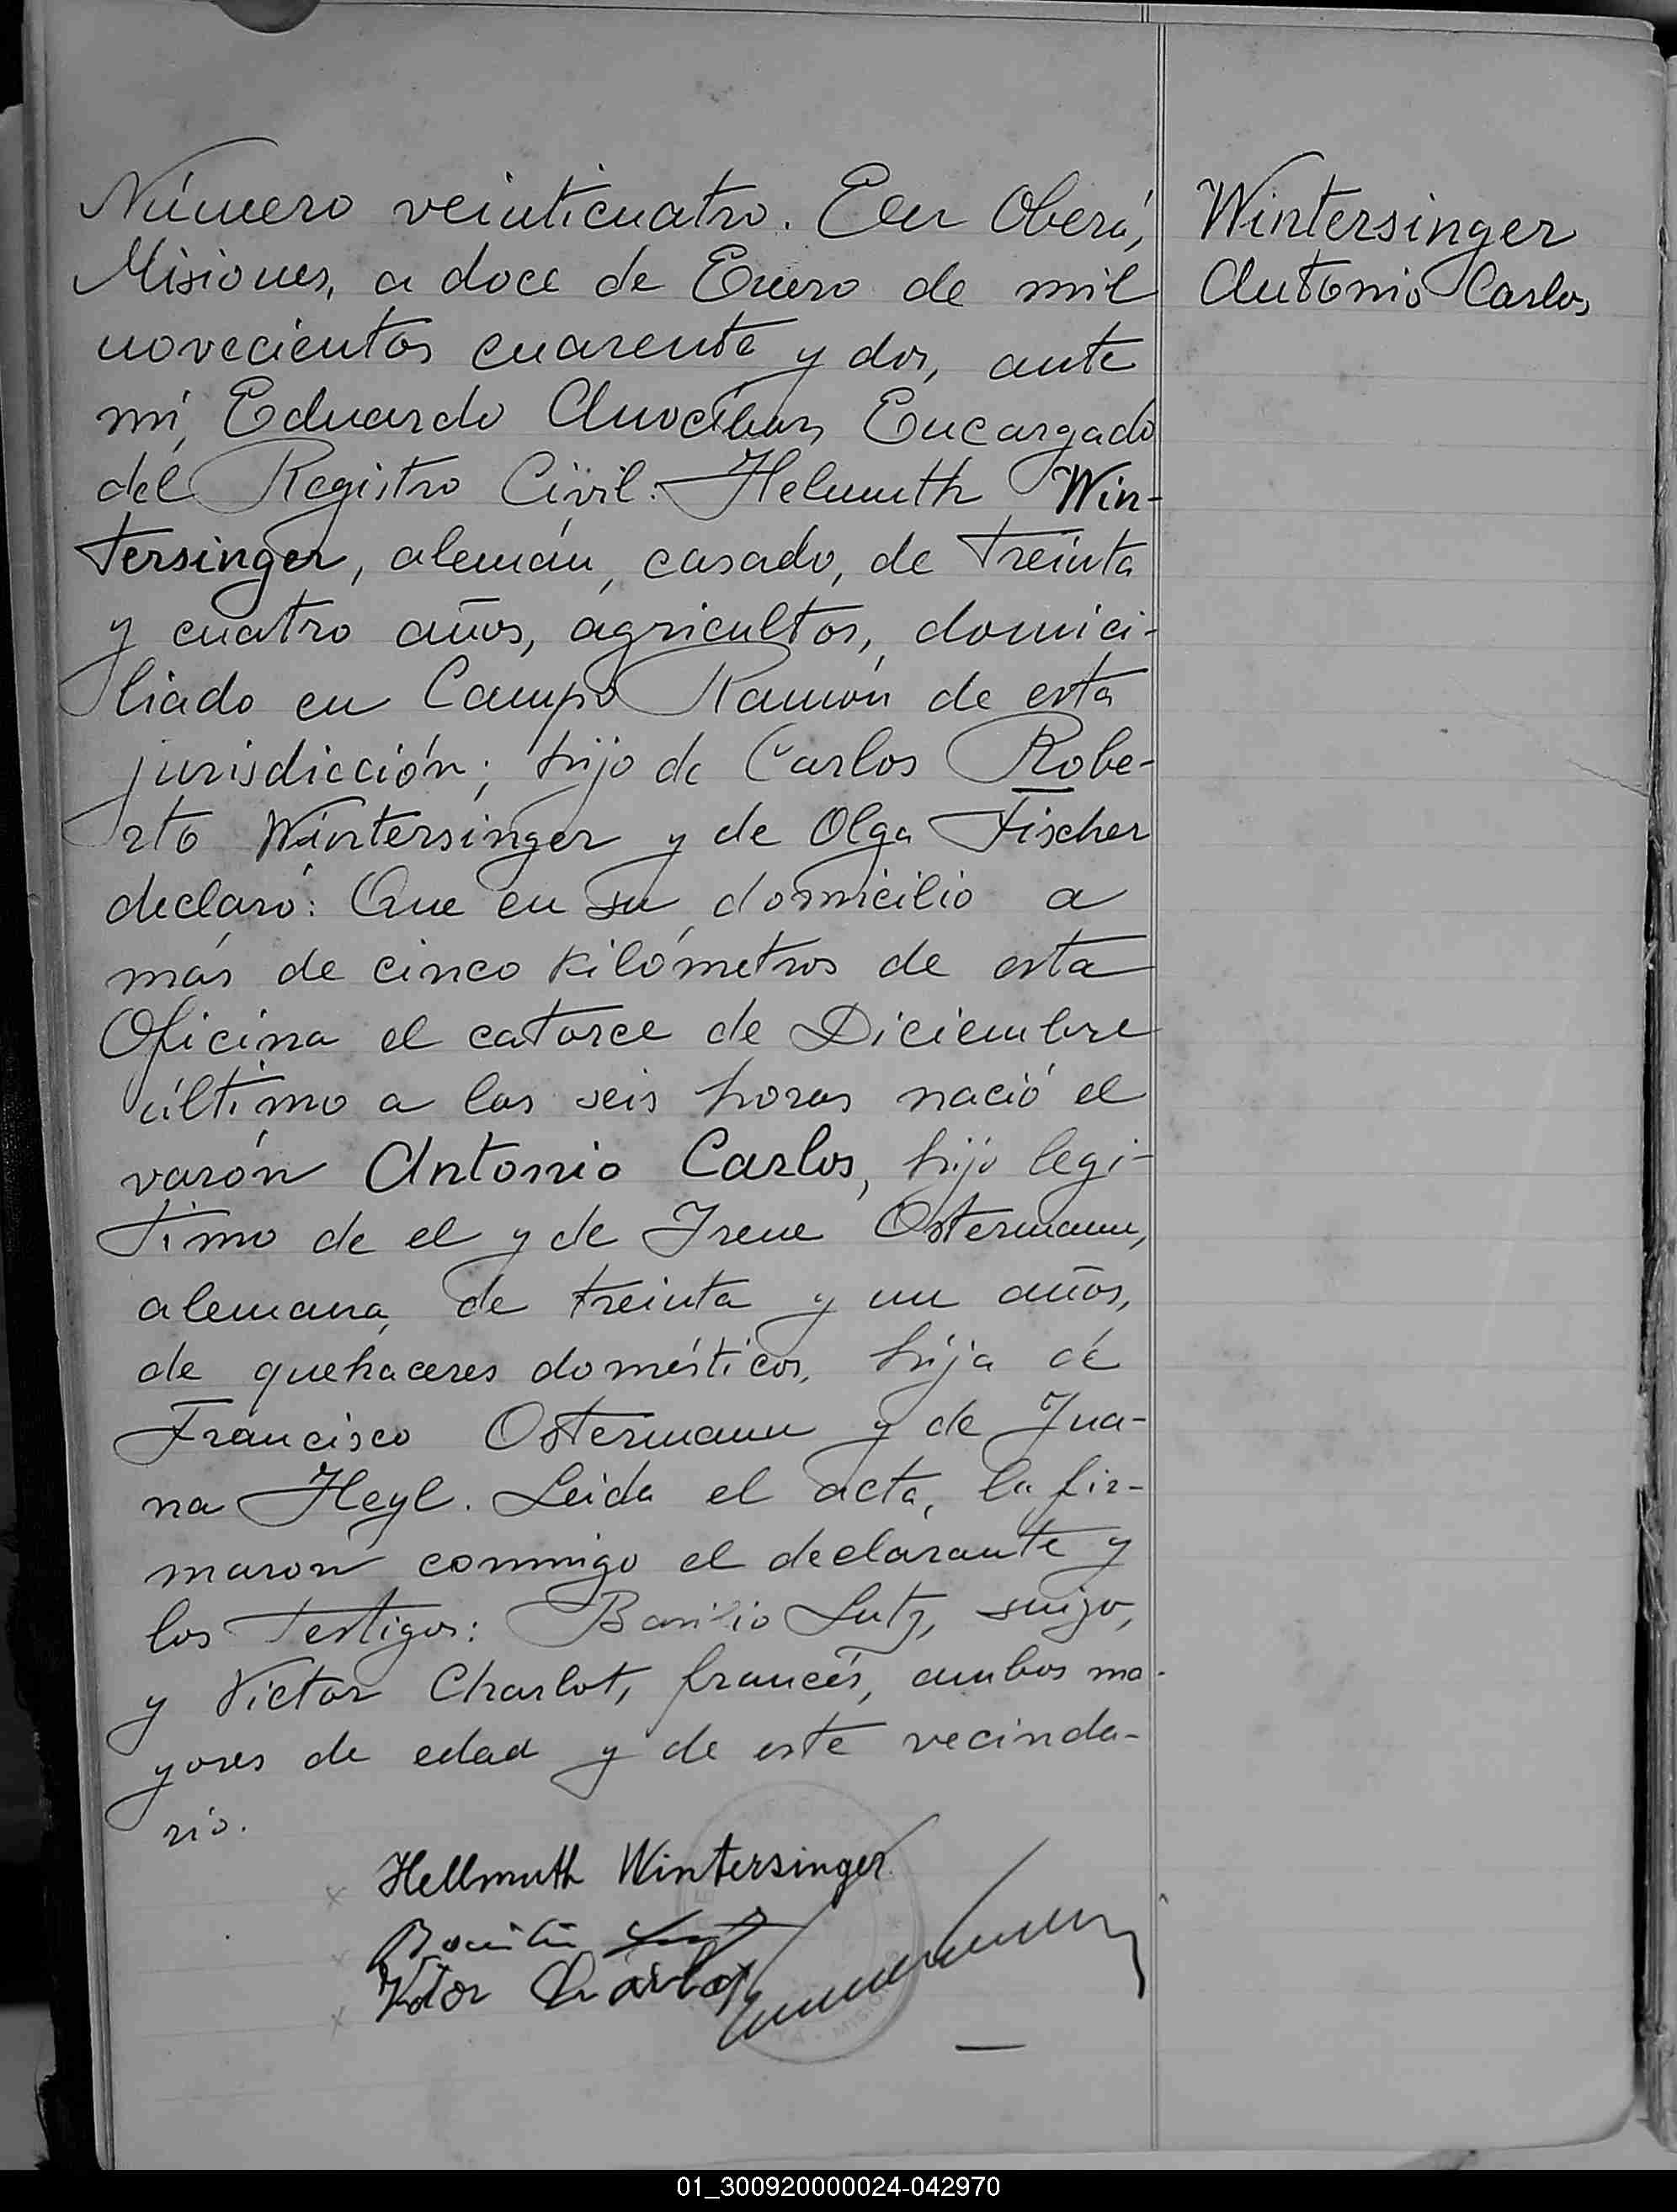 Número veinticuatro. En Oberá,
Misiones, a doce de Enero de mil
novecientos cuarenta y dos, ante
mí, Eduardo Encargado
del Registro Civil. Helmuth Win-
tersinger, alemán, casado, de treinta
y cuatro años, agricultor, domici-
liado en Campo Ramón de esta
jurisdicción; hijo de Carlos Robe-
rto Wintersinger y de Olga Fischer
declaró: Que en su domicilio a
más de cinco kilómetros de esta
Oficina el catorce de Diciembre
último a las seis horas nació el
varón Antonio Carlos, hijo legí-
timo de el y de Irene Ostermann,
alemana, de treinta y un años,
de quehaceres domésticos, hija de
Francisco Ostermann y de Jua-
na Heyl. Leida el acta, la fir-
maron conmigo el declarante y
los testigos: Basilio Lutz, suizo,
y Victor Charlot, francés, ambos ma-
yores de edad y de este vecinda-
rio.
Wintersinger
Antonio Carlos
Hellmuth Wintersinger
Victor Charlot
01_300920000024-042970